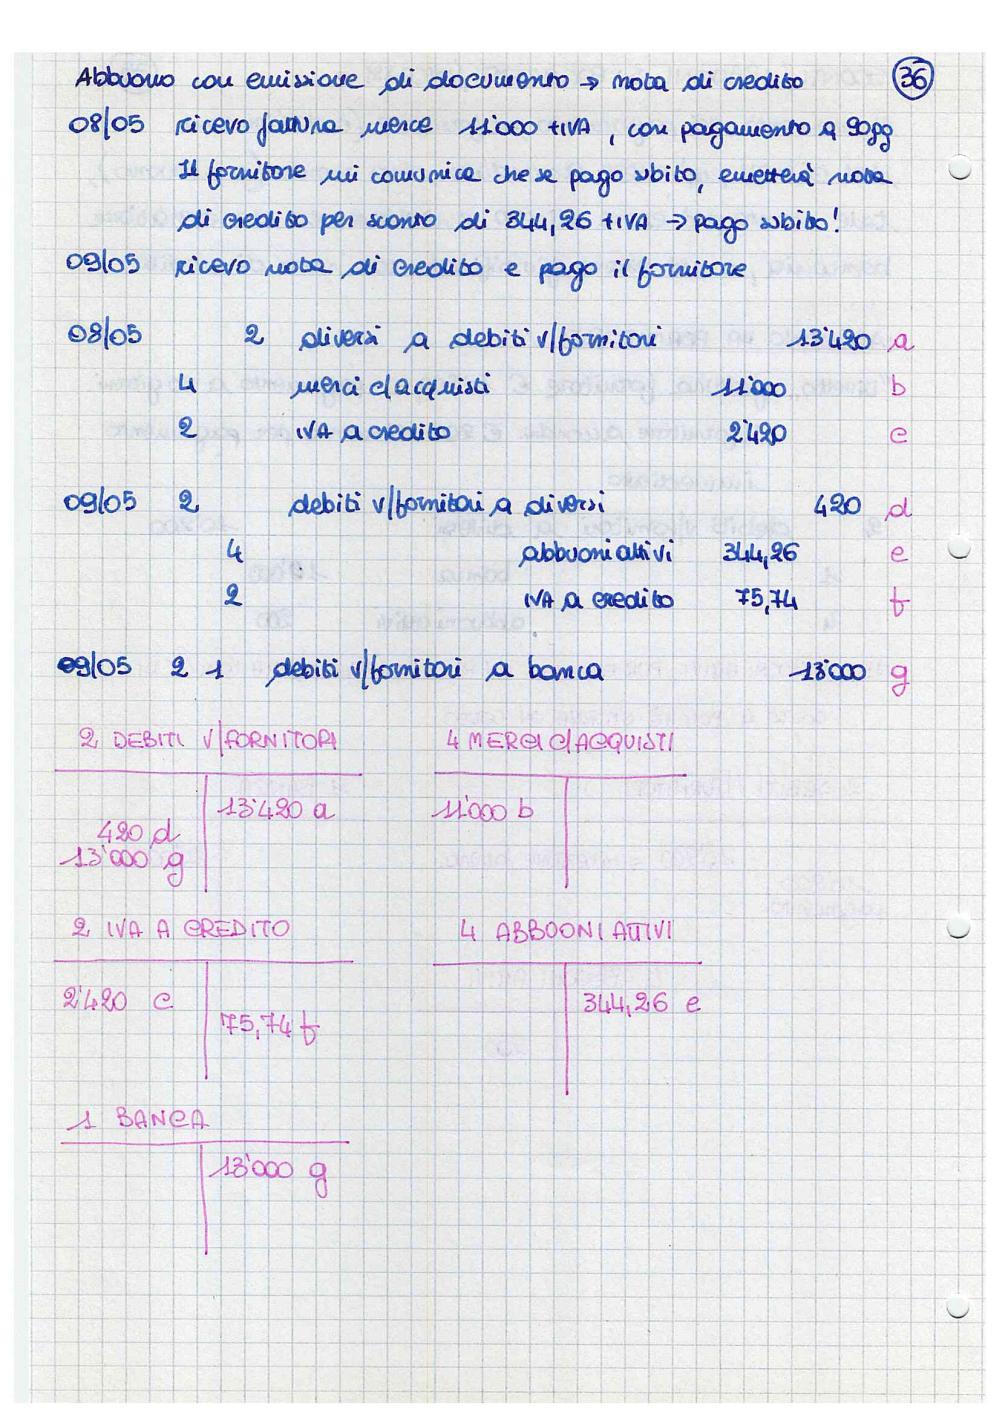 Abbuono con emissione di documento → nota di credito 36
08/05 ricevo fattura merce 11'000 +IVA, con pagamento a 90gg
Il fornitore mi comunica che se pago subito, emetterà nota
di credito per sconto di 344,26 +IVA → pago subito!
09/05 ricevo nota di credito e pago il fornitore
08/05 2 diversi a debiti v/fornitori 13'420 a
4 merci c/acquisti 11'000 b
2 IVA a credito 2'420 c
09/05 2 debiti v/fornitori a diversi 420 d
4 abbuoni attivi 344,26 e
2 IVA a credito 75,74 f
09/05 2 1 debiti v/fornitori a banca 13'000 g
2 DEBITI V/FORNITORI 4 MERCI C/ACQUISTI
13'420 a 11'000 b
420 d
13'000 g
2 IVA A CREDITO 4 ABBUONI ATTIVI
2'420 c 344,26 e
75,74 f
1 BANCA
13'000 g